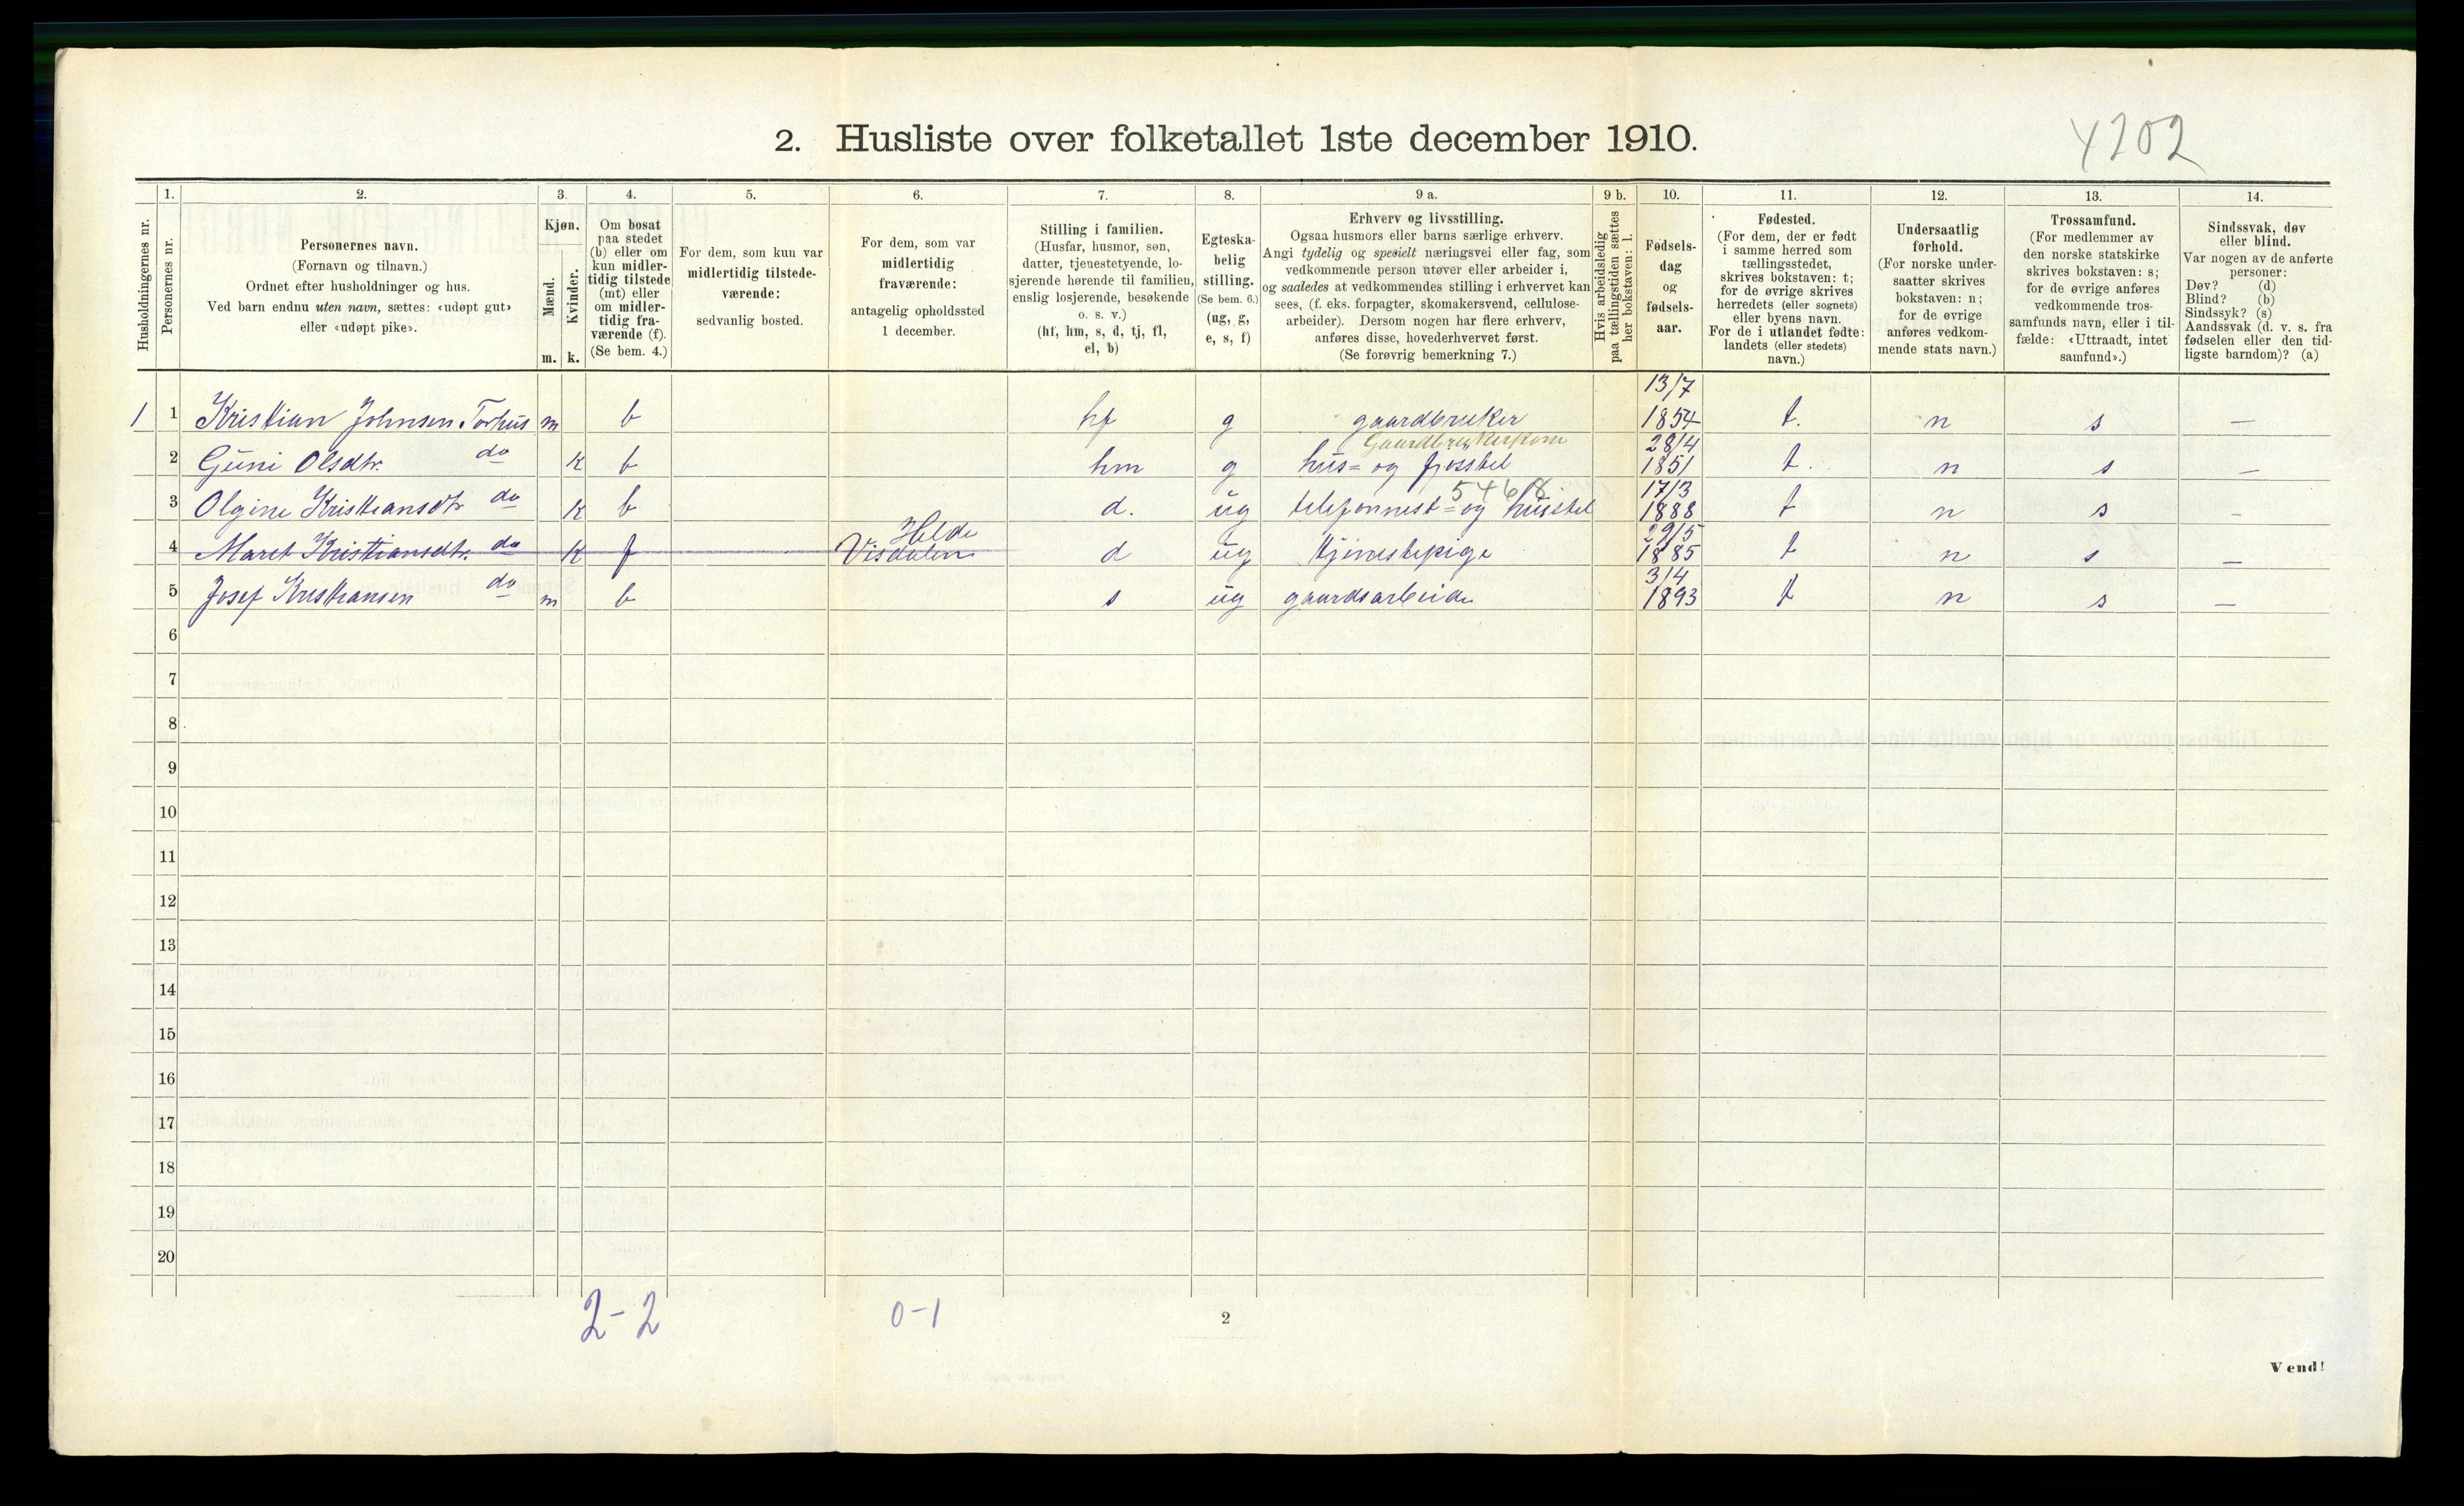 4202
2. Husliste over folketallet 1ste december 1910.
Husholdningernes nr.
1. Personernes nr.
2. Personernes navn.
(Fornavn og tilnavn.)
Ordnet efter husholdninger og hus.
Ved barn endnu uten navn, sættes: «udøpt gut»
eller «udøpt pike».
3. Kjøn.
Mænd. m.
Kvinder. k.
4. Om bosat
paa stedet
(b) eller om
kun midler-
tidig tilstede
(mt) eller
om midler-
tidig fra-
værende (f).
(Se bem. 4.)
5. For dem, som kun var
midlertidig tilstede-
værende:
sedvanlig bosted.
6. For dem, som var
midlertidig
fraværende:
antagelig opholdssted
1 december.
7. Stilling i familien.
(Husfar, husmor, søn,
datter, tjenestetyende, lo-
sjerende hørende til familien,
enslig losjerende, besøkende
o. s. v.)
(hf, hm, s, d, tj, fl,
el, b)
8. Egteska-
belig
stilling.
(Se bem. 6.)
(ug, g,
e, s, f)
9 a. Erhverv og livsstilling.
Ogsaa husmors eller barns særlige erhverv.
Angi tydelig og spesielt næringsvei eller fag, som
vedkommende person utøver eller arbeider i,
og saaledes at vedkommendes stilling i erhvervet kan
sees, (f. eks. forpagter, skomakersvend, cellulose-
arbeider). Dersom nogen har flere erhverv,
anføres disse, hovederhvervet først.
(Se forøvrig bemerkning 7.)
9 b. Hvis arbeidsledig
paa tællingstiden sættes
her bokstaven: l.
10. Fødsels-
dag
og
fødsels-
aar.
11. Fødested.
(For dem, der er født
i samme herred som
tællingsstedet,
skrives bokstaven: t;
for de øvrige skrives
herredets (eller sognets)
eller byens navn.
For de i utlandet fødte:
landets (eller stedets)
navn.)
12. Undersaatlig
forhold.
(For norske under-
saatter skrives
bokstaven: n;
for de øvrige
anføres vedkom-
mende stats navn.)
13. Trossamfund.
(For medlemmer av
den norske statskirke
skrives bokstaven: s;
for de øvrige anføres
vedkommende tros-
samfunds navn, eller i til-
fælde: «Uttraadt, intet
samfund».)
14. Sindssvak, døv
eller blind.
Var nogen av de anførte
personer:
Døv? (d)
Blind? (b)
Sindssyk? (s)
Aandssvak (d. v. s. fra
fødselen eller den tid-
ligste barndom)? (a)
1 1 Kristian Johnsen Torhus m b hf g gaardbruker 13/7 1854 t. n s —
Gaardbrukerkone
2 Guni Olsdtr. do k b hm g hus= og fjosstel 28/4 1851 t. n s —
5468
3 Olgine Kristiansdtr do k b d. ug telefonnist= og husstel 17/3 1888 t n s -
Helde
4 Maret Kristiansdtr. do k f Visdalen d ug tjenestepige 29/5 1885 t n s —
5 Josef Kristiansen do m b s ug gaardsarbeide 3/4 1893 t n s —
6
7
8
9
10
11
12
13
14
15
16
17
18
19
20
2-2 0-1 2
Vend!